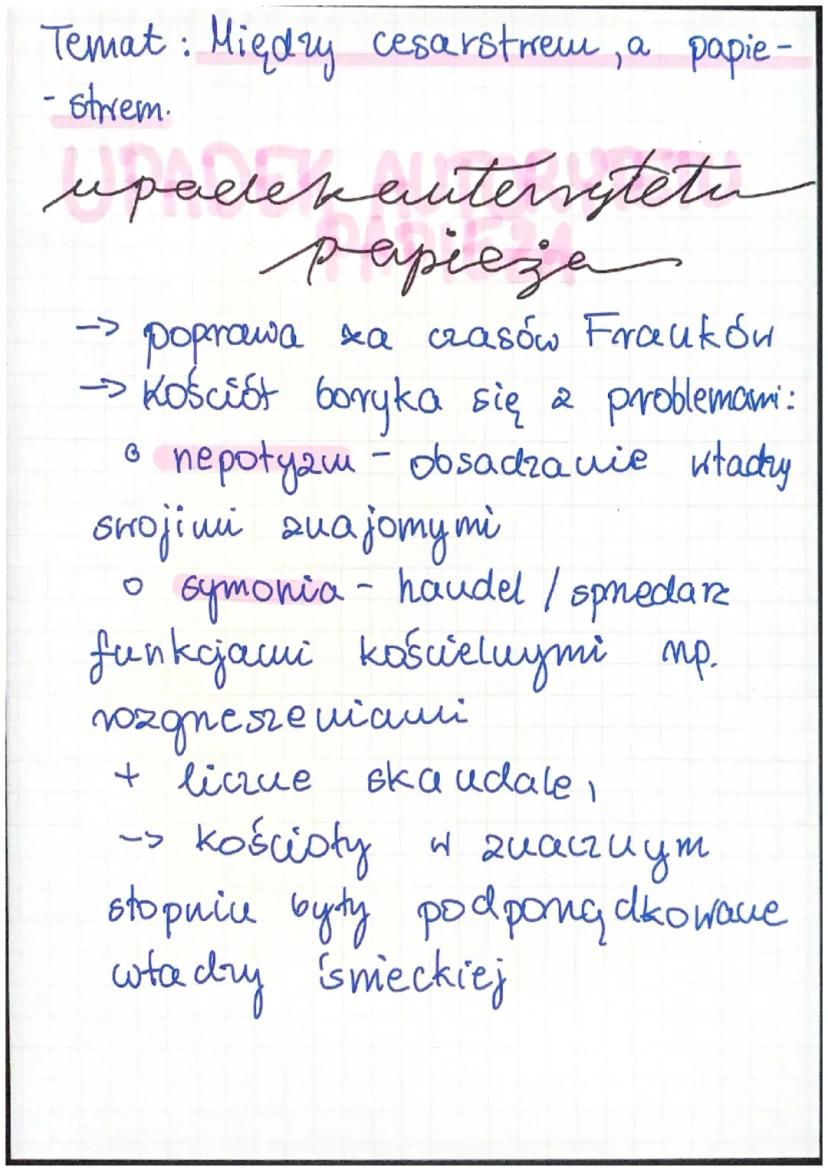 Temat: Między cesarstwem, a papie-
- stwem.
UPADEK AUTORYTETU
PAPIEŻA
upadek autorytetu
papieża
-> poprawa za czasów Franków
-> Kościół boryka się z problemami:
o nepotyzm - obsadzanie władzy
swojimi znajomymi
o symonia - handel / sprzedarz
funkcjami kościelnymi np.
rozgrzeszeniami
+ liczne skandale,
-> kościoły w znacznym
stopniu były podporządkowane
władzy świeckiej